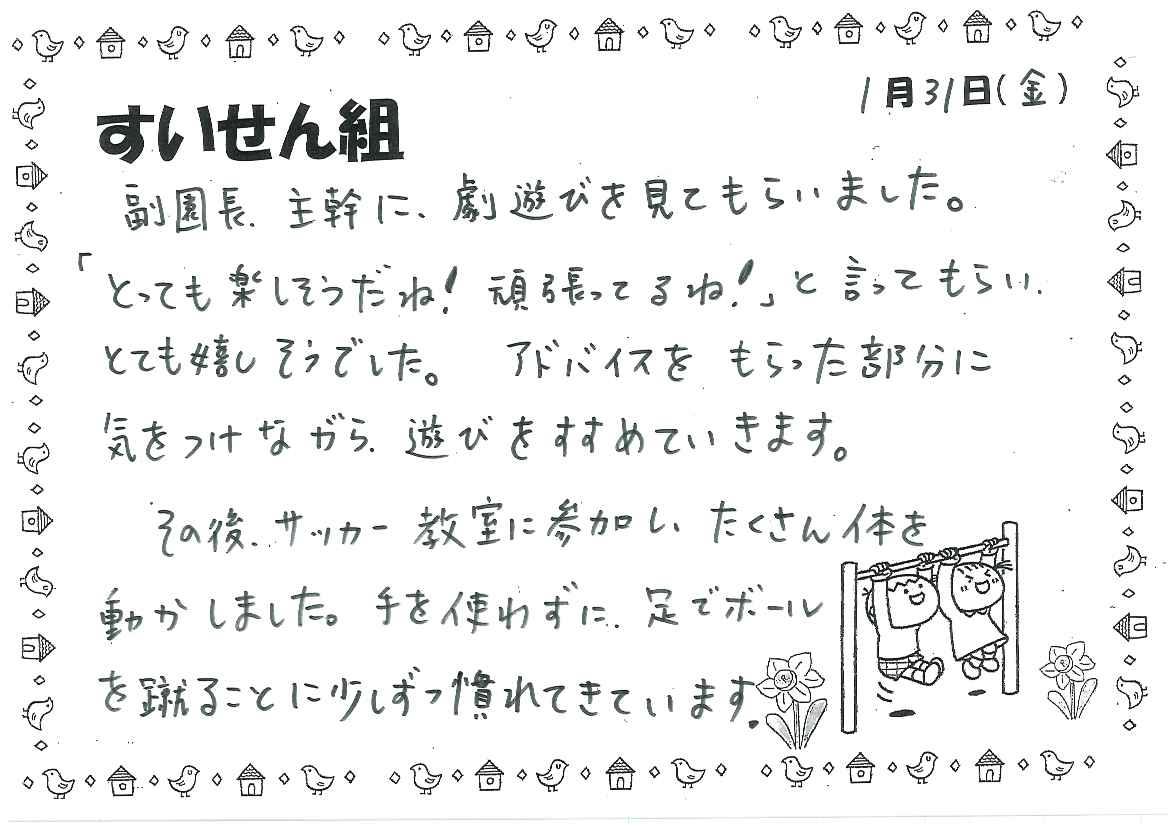 1月31日(金)
すいせん組
副園長、主幹に、劇遊びを見てもらいました。
「とっても楽しそうだね!頑張ってるね!」と言ってもらい、
とても嬉しそうでした。 アドバイスを もらった部分に
気をつけながら、遊びをすすめていきます。
その後、サッカー教室に参加し、たくさん体を
動かしました。手を使わずに、足でボール
を蹴ることに少しずつ慣れてきています。